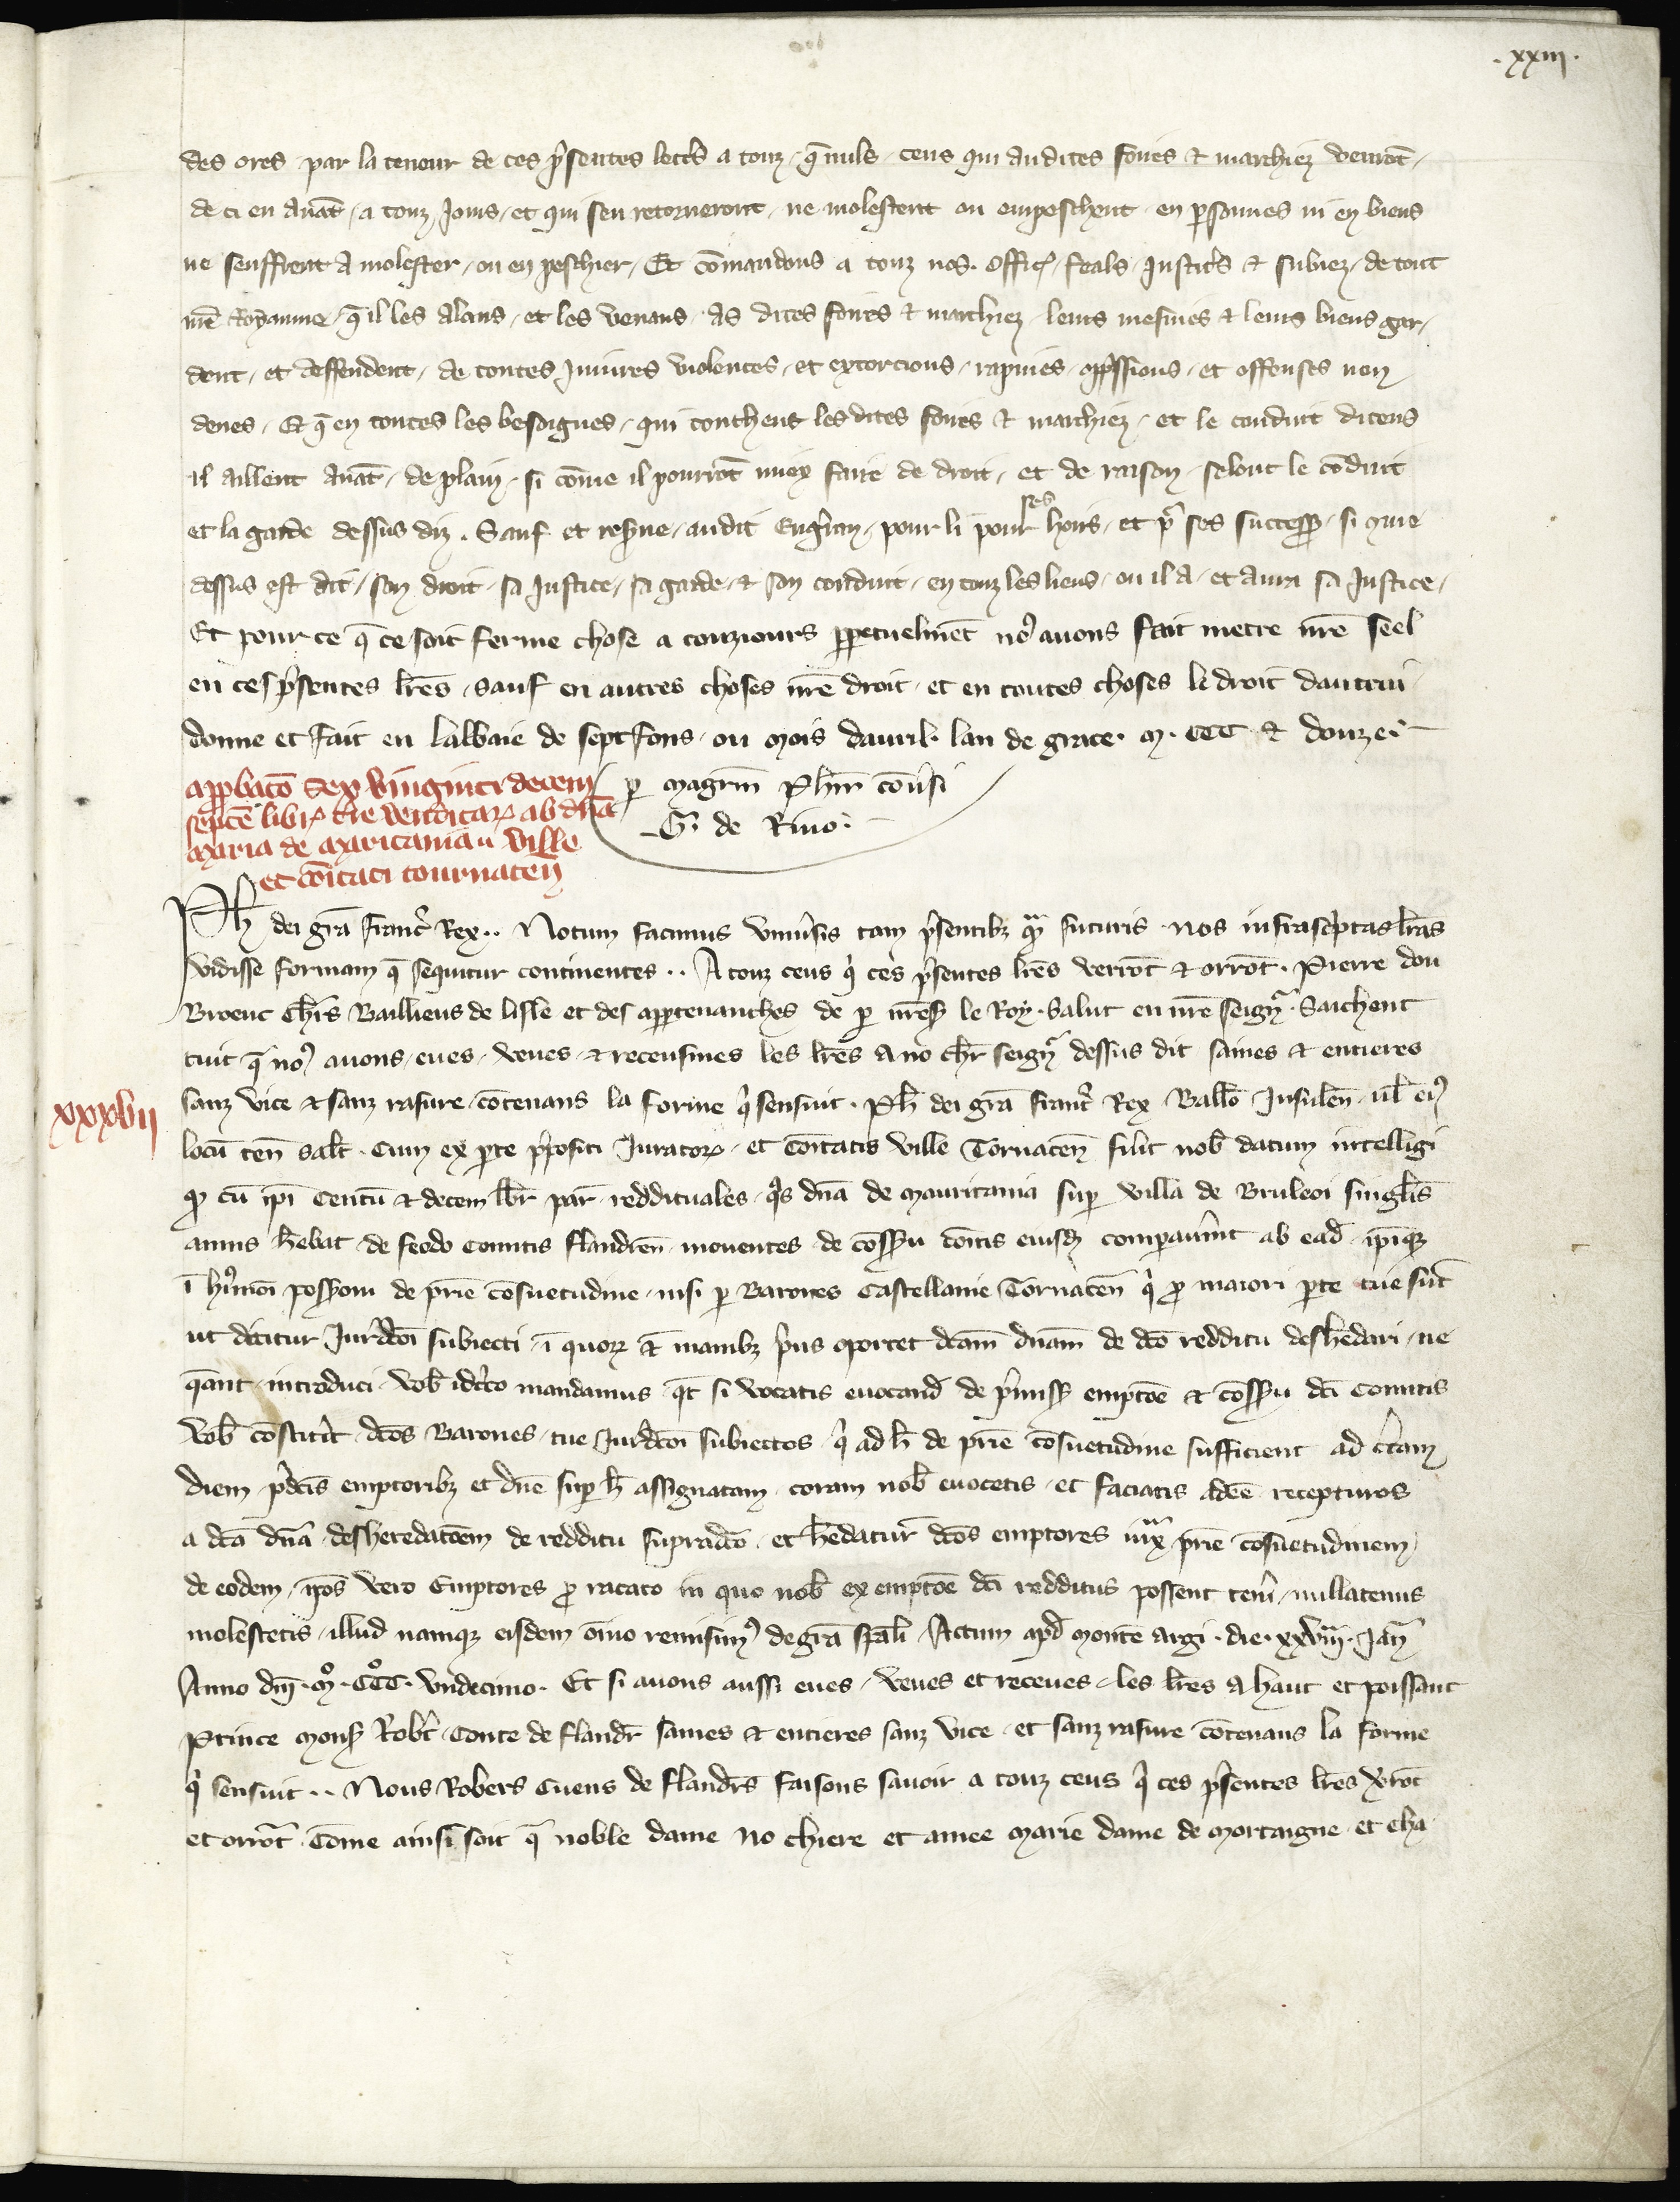 .xxiii.
des ores par la teneur de ces p̄sentes lettˢ a touz q̄ nuls ceus qui audites foires et marchiez venrōt
de ci en auāt a touz jours et qui sen retorneront ne molestent ou empeschent en personnes ni en biens
ne seuffrent a molester ou en peschier Et cōmandons a touz nos offic̄ feals justicˢ et subiez de tout
nr̄e Royaume q̄ il les alans et les venans as dites foires et marchiez leurs mesnies et leurs biens gar
dent et deffendent de toutes jniures violences et extorcions rapines opp̄ssions et offenses non
deues Et q̄ en toutes les besoignes qui touchent les dites foires et marchiez et le conduit diceus
il aillent auāt de plain si cōme il pourrōt miex faire de droit et de raison selont le cōduit
et la garde dessus diz. Sauf et reserue audit Engˢran pour li pour ses hoirs et pʳ ses success̄ si que
dessus est dit son droit sa justice sa garde et son conduit en touz les liens ou il a et aura sa justice
Et pour ce q̄ ce soit ferme chose a touzjours ppetuelmēt no⁹ auons fait metre nr̄e seel
en ces p̄sentes lr̄es sauf en autres choses nr̄e droit et en toutes choses le droit dautrui
donne et fait en labbaie de septfons ou mois dauril lan de grace m. CCC et douze
app̄bacō sex vinginti decem
septē libr̄ t̄re venditar̄ ab dn̄a
maria de maritania ville
et cōitati tournaceñ
p magrm̄ Phm̄ conūsi
G. de Riuo.
Ph̄ dei gr̄a francˢ Rex.. Notum facimus vniuˢsis tam p̄sentibz qᵃm futuris nos infrascˢptas lr̄as
vidisse formam q̄ sequitur continentes.. A touz ceus qⁱ ces p̄sentes lr̄es verrōt et orrōt. Pierre dou
Broeuc chr̄s Baillieus de lisle et des appertenanches de p nr̄es le Roy. salut en nr̄e seignʳ. Saichent
tuit q̄ no⁹ auons eues veues et receumes les lr̄es a no chr̄ seignʳ dessus dit saines et entieres
sanz vice et sanz rasure cōtenans la forme qⁱ sensuit. Ph̄ dei gr̄a francˢ Rex Ballō Insuleñ ul̄ ei⁹
xxxvii
locū ten̄ sal̄t. Cum ex pte p̄positi Jurator̄ et Cōitatis ville Tornaceñ fuˢit nob̄ datum intelligi
qᵈ cū ip̄i Centū et decem libr̄ par̄ reddituales qᵃs dn̄a de mauritania sup villā de Bruleoi singl̄is
annis h̄ebat de feodo Comitis flandreñ mouentes de cōss̄u cōitis eiusd̄ comparauˢint ab ead̄ ip̄iqz
ī hⁱmōi poss̄om de pr̄ie cōsuetudine nisi p Barones Castellanie Tornaceñ qⁱ p maiori pte tue sūt
ut dicitur Jurisdcōi subiecti ī quorz et manibz pⁱus oportet dcam̄ dnam̄ de dcō redditu desh̄edari ne
qᵃnt introduci vob̄ idcⁱrco mandamus qᵗ si vocatis euocand̄ de p̄miss̄ emptōe et cōss̄u dcī Comitis
vob̄ cōstitˢit dcōs Barones tue Jurisdcōi subiectos qⁱ ad h̄ de pr̄ie cōsuetudine sufficient ad cˢtam
diem p̄dcīs emptoribz et dn̄e sup h̄ assignatam coram nob̄ euocetis et faciatis adeē recepturos
a dcā dn̄a desheredatōem de redditu supradcō et h̄edatur̄ dcōs emptores iuxᵃ pr̄ie cōsuetudinem
de eodem ip̄os vero Emptores p racato in quo nob̄ ex emptōe dcī redditus possent tenˢi nullatenus
molestetis illud namqz eisdem oīno remisim⁹ de gr̄a spāli Actum apd̄ montē argi. die. xxviiiᵃ. Janʳ
Anno dn̄i. m°. CCC°. vndecimo. Et si auons aussi eues veues et receues les lr̄es a haut et poissant
Prince mons̄ Robˢt Conte de flandr̄ saines et entieres sanz vice et sanz rasure cōtenans la forme
qⁱ sensuit.. Nous Robers Cuens de flandrˢs faisons sauoir a touz ceus qⁱ ces p̄sentes lr̄es vˢrōt
et orrōt. Cōme ainsi soit q̄ noble dame no chiere et amee marie dame de mortaigne et cha